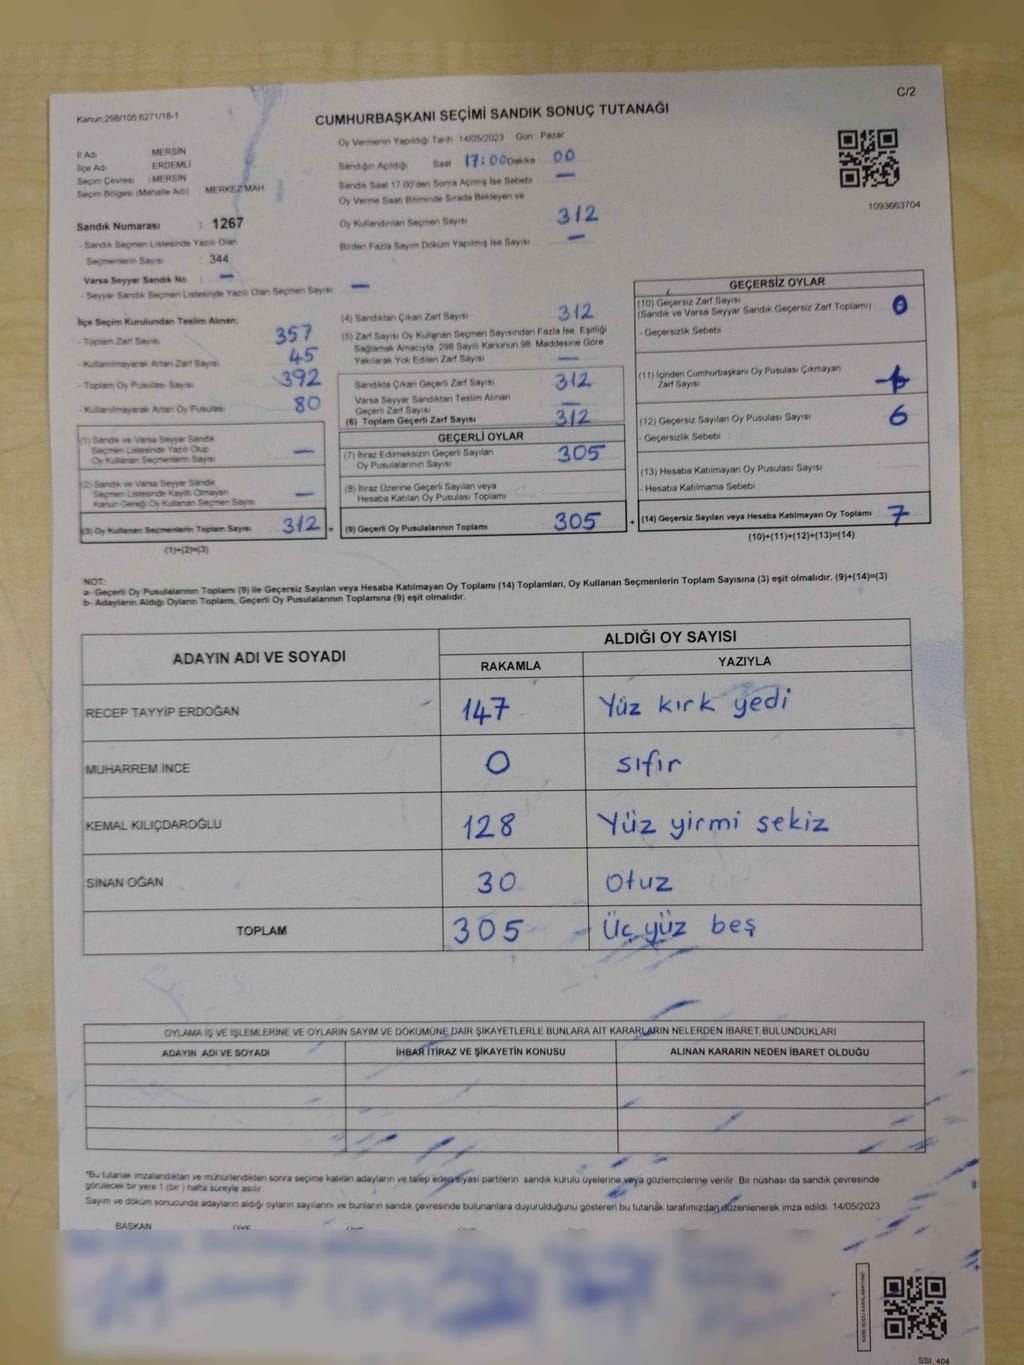 C/2
Kanun;298/105;6271/18-1
CUMHURBAŞKANI SEÇİMİ SANDIK SONUÇ TUTANAĞI
İl Adı MERSİN
İlçe Adı ERDEMLİ
Seçim Çevresi : MERSİN
Seçim Bölgesi (Mahalle Adı) : MERKEZ MAH
Sandık Numarası : 1267
- Sandık Seçmen Listesinde Yazılı Olan
Seçmenlerin Sayısı : 344
Varsa Seyyar Sandık No : —
- Seyyar Sandık Seçmen Listesinde Yazılı Olan Seçmen Sayısı : —
Oy Vermenin Yapıldığı Tarih 14/05/2023 Gün : Pazar
Sandığın Açıldığı Saat 17:00 Dakika 00
Sandık Saat 17.00'den Sonra Açılmış İse Sebebi —
Oy Verme Saati Bitiminde Sırada Bekleyen ve
Oy Kullandırılan Seçmen Sayısı 312
Birden Fazla Sayım Döküm Yapılmış İse Sayısı —
1093663704
İlçe Seçim Kurulundan Teslim Alınan;
- Toplam Zarf Sayısı 357
- Kullanılmayarak Artan Zarf Sayısı 45
- Toplam Oy Pusulası Sayısı 392
- Kullanılmayarak Artan Oy Pusulası 80
(1) Sandık ve Varsa Seyyar Sandık
Seçmen Listesinde Yazılı Olup
Oy Kullanan Seçmenlerin Sayısı —
(2) Sandık ve Varsa Seyyar Sandık
Seçmen Listesinde Kayıtlı Olmayan
Kanun Gereği Oy Kullanan Seçmen Sayısı —
(3) Oy Kullanan Seçmenlerin Toplam Sayısı 312 =
(1)+(2)=(3)
(4) Sandıktan Çıkan Zarf Sayısı 312
(5) Zarf Sayısı Oy Kullanan Seçmen Sayısından Fazla İse, Eşitliği
Sağlamak Amacıyla, 298 Sayılı Kanunun 98. Maddesine Göre
Yakılarak Yok Edilen Zarf Sayısı —
Sandıkta Çıkan Geçerli Zarf Sayısı 312
Varsa Seyyar Sandıktan Teslim Alınan
Geçerli Zarf Sayısı —
(6) Toplam Geçerli Zarf Sayısı 312
GEÇERLİ OYLAR
(7) İtiraz Edilmeksizin Geçerli Sayılan
Oy Pusulalarının Sayısı 305
(8) İtiraz Üzerine Geçerli Sayılan veya
Hesaba Katılan Oy Pusulası Toplamı
(9) Geçerli Oy Pusulalarının Toplamı 305 +
GEÇERSİZ OYLAR
(10) Geçersiz Zarf Sayısı
(Sandık ve Varsa Seyyar Sandık Geçersiz Zarf Toplamı) : 0
- Geçersizlik Sebebi :
(11) İçinden Cumhurbaşkanı Oy Pusulası Çıkmayan
Zarf Sayısı
(12) Geçersiz Sayılan Oy Pusulası Sayısı : 6
- Geçersizlik Sebebi :
(13) Hesaba Katılmayan Oy Pusulası Sayısı :
- Hesaba Katılmama Sebebi :
(14) Geçersiz Sayılan veya Hesaba Katılmayan Oy Toplamı : 7
(10)+(11)+(12)+(13)=(14)
NOT:
a- Geçerli Oy Pusulalarının Toplamı (9) ile Geçersiz Sayılan veya Hesaba Katılmayan Oy Toplamı (14) Toplamları, Oy Kullanan Seçmenlerin Toplam Sayısına (3) eşit olmalıdır. (9)+(14)=(3)
b- Adayların Aldığı Oyların Toplamı, Geçerli Oy Pusulalarının Toplamına (9) eşit olmalıdır.
ADAYIN ADI VE SOYADI ALDIĞI OY SAYISI
RAKAMLA YAZIYLA
RECEP TAYYİP ERDOĞAN 147 Yüz kırk yedi
MUHARREM İNCE 0 sıfır
KEMAL KILIÇDAROĞLU 128 Yüz yirmi sekiz
SİNAN OĞAN 30 otuz
TOPLAM 305 Üç yüz beş
OYLAMA İŞ VE İŞLEMLERİNE VE OYLARIN SAYIM VE DÖKÜMÜNE DAİR ŞİKAYETLERLE BUNLARA AİT KARARLARIN NELERDEN İBARET BULUNDUKLARI
ADAYIN ADI VE SOYADI İHBAR İTİRAZ VE ŞİKAYETİN KONUSU ALINAN KARARIN NEDEN İBARET OLDUĞU
*Bu tutanak imzalandıktan ve mühürlendikten sonra seçime katılan adayların ve talep eden siyasi partilerin sandık kurulu üyelerine veya gözlemcilerine verilir. Bir nüshası da sandık çevresinde
görülecek bir yere 1 (bir) hafta süreyle asılır.
Sayım ve döküm sonucunda adayların aldığı oyların sayılarını ve bunların sandık çevresinde bulunanlara duyurulduğunu gösteren bu tutanak tarafımızdan düzenlenerek imza edildi. 14/05/2023
BAŞKAN ÜYE ÜYE ÜYE
KARE KODU KARALAMAYINIZ!
SSI_404